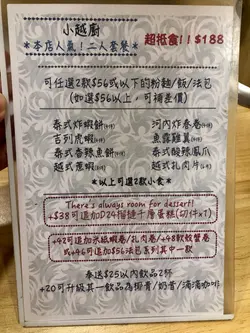 小越廚
*本店人氣!二人套餐*
超抵食!!$188
可任選2款$56或以下的粉麵/飯/法包
(如選$56以上,可補差價)
泰式炸蝦餅
河內炸春卷
吉列虎蝦
魚露雞翼
泰式香辣魚餅
泰式酸辣鳳爪
越式蔗蝦
越式扎肉片
*以上可選2款小食*
There's always room for dessert!
+$38可追加D24榴槤千層蛋糕(切件x1)
+42可追加米紙蝦卷/扎肉卷/+48軟殼蟹卷
或+46可追加$56法包系列其中一款
奉送$25以內飲品2杯
+20可升級其一飲品為椰青/奶昔/滴滴咖啡